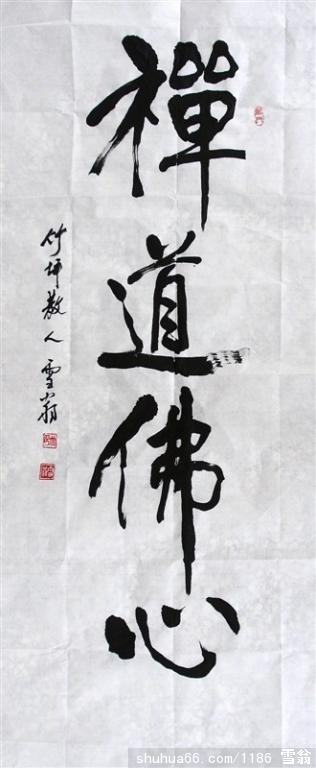 禪道佛心
竹坪散人雪翁
shuhua66.com/1186 雪翁